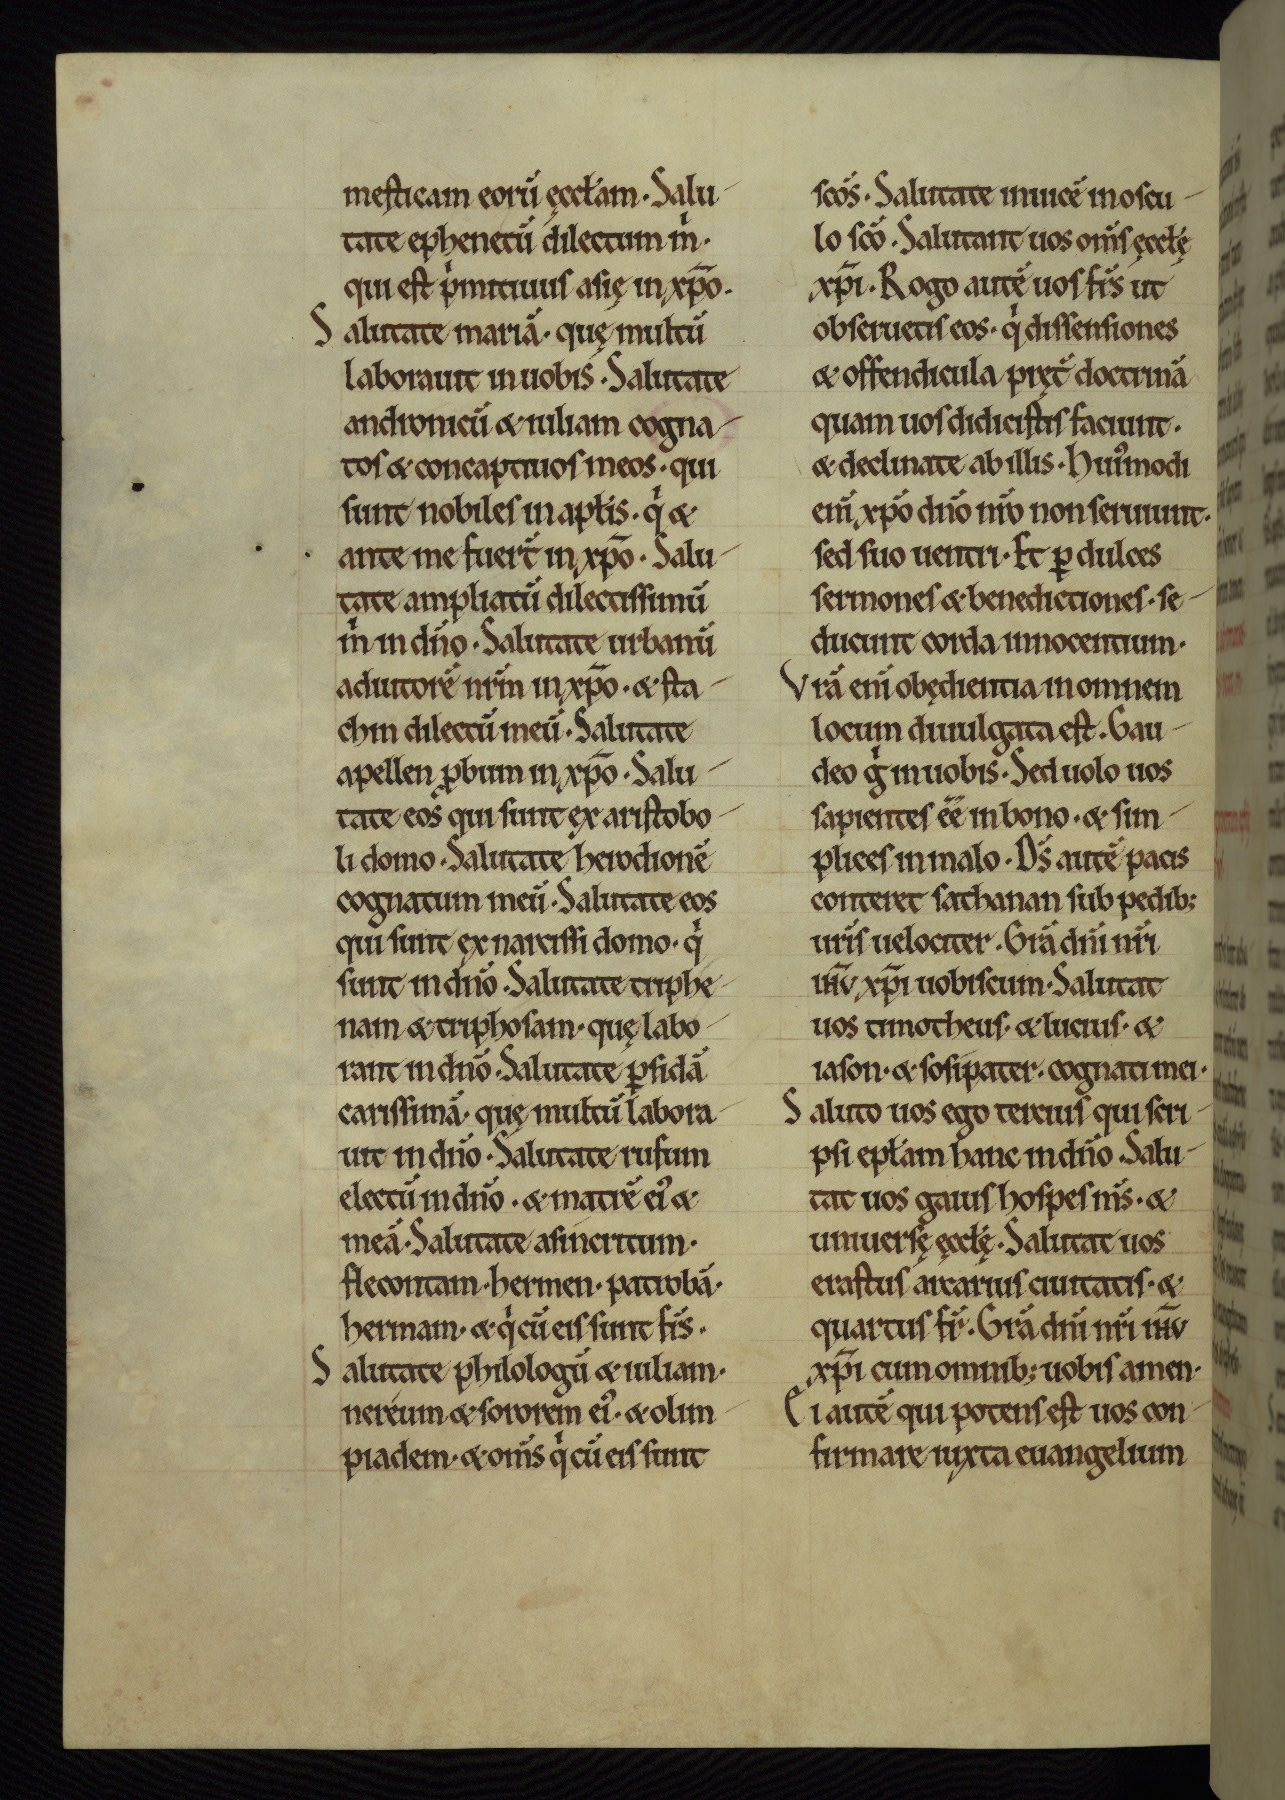 mesticam eorū ęccłam. Salu-
tate ephenetū dilectum m̍.
qui est p̍mitiuus asię in xp̄o.
Salutate mariā. quę multū
laborauit in uobis. Salutate
andronicū & iuliam cogna-
tos & concaptiuos meos. qui
sunt nobiles in apłis. q̍ &
ante me fuer̄t in xp̄o. Salu-
tate ampliatū dilectissimū
m̍ in dn̄o. Salutate urbanū
adiutorē nr̄m in xp̄o. & sta-
chin dilectū meū. Salutate
apellen ꝓbum in xp̄o. Salu-
tate eos qui sunt ex aristobo-
li domo. Salutate herodionē
cognatum meū. Salutate eos
qui sunt ex narcissi domo. q̍
sunt in dn̄o. Salutate triphe-
nam & triphosam. quę labo-
rant in dn̄o. Salutate ꝑsidā
carissimā. quę multū labora-
uit in dn̄o. Salutate rufum
electū in dn̄o. & matrē ei᾿ &
meā. Salutate asincritum.
flecontam. hermen. patrobā.
hermam. & q̍ cū eis sunt fr̄s.
Salutate philologū & iuliam.
nereum & sororem ei᾿. & olim-
piadem. & om̄s q̍ cū eis sunt
sc̄os. Salutate inuicē in oscu-
lo sc̄o. Salutant uos om̄s ęccłę
xp̄i. Rogo autē uos fr̄s ut
obseruetis eos. q̍ dissensiones
& offendicula pręt̄ doctrinā
quam uos didicistis faciunt.
& declinate ab illis. Hui᾿modi
eni̅ xp̄o dn̄o nr̄o non seruiunt.
sed suo uentri. Et ꝑ dulces
sermones & benedictiones. se-
ducunt corda innocentium.
Vrā eni̅ obędientia in omnem
locum diuulgata est. Gau-
deo g̍ in uobis. Sed uolo uos
sapientes ēē in bono. & sim-
plices in malo. Ds̄ autē pacis
conteret sathanan sub pedib;
uris̄ uelociter. Grā dn̄i nr̄i
ih̄u xp̄i uobiscum. Salutat
uos timotheus. & lucius. &
iason. & sosipater. cognati mei.
Saluto uos ego tercius qui scri-
psi epłam hanc in dn̄o. Salu-
tat uos gaius hospes m̄s. &
uniuersę ęccłę. Salutat uos
erastus arcarius ciuitatis. &
quartus fr̄. Grā dn̄i nr̄i ih̄u
xp̄i cum omnib; uobis amen.
Ei autē qui potens est uos con-
firmare iuxta euangelium